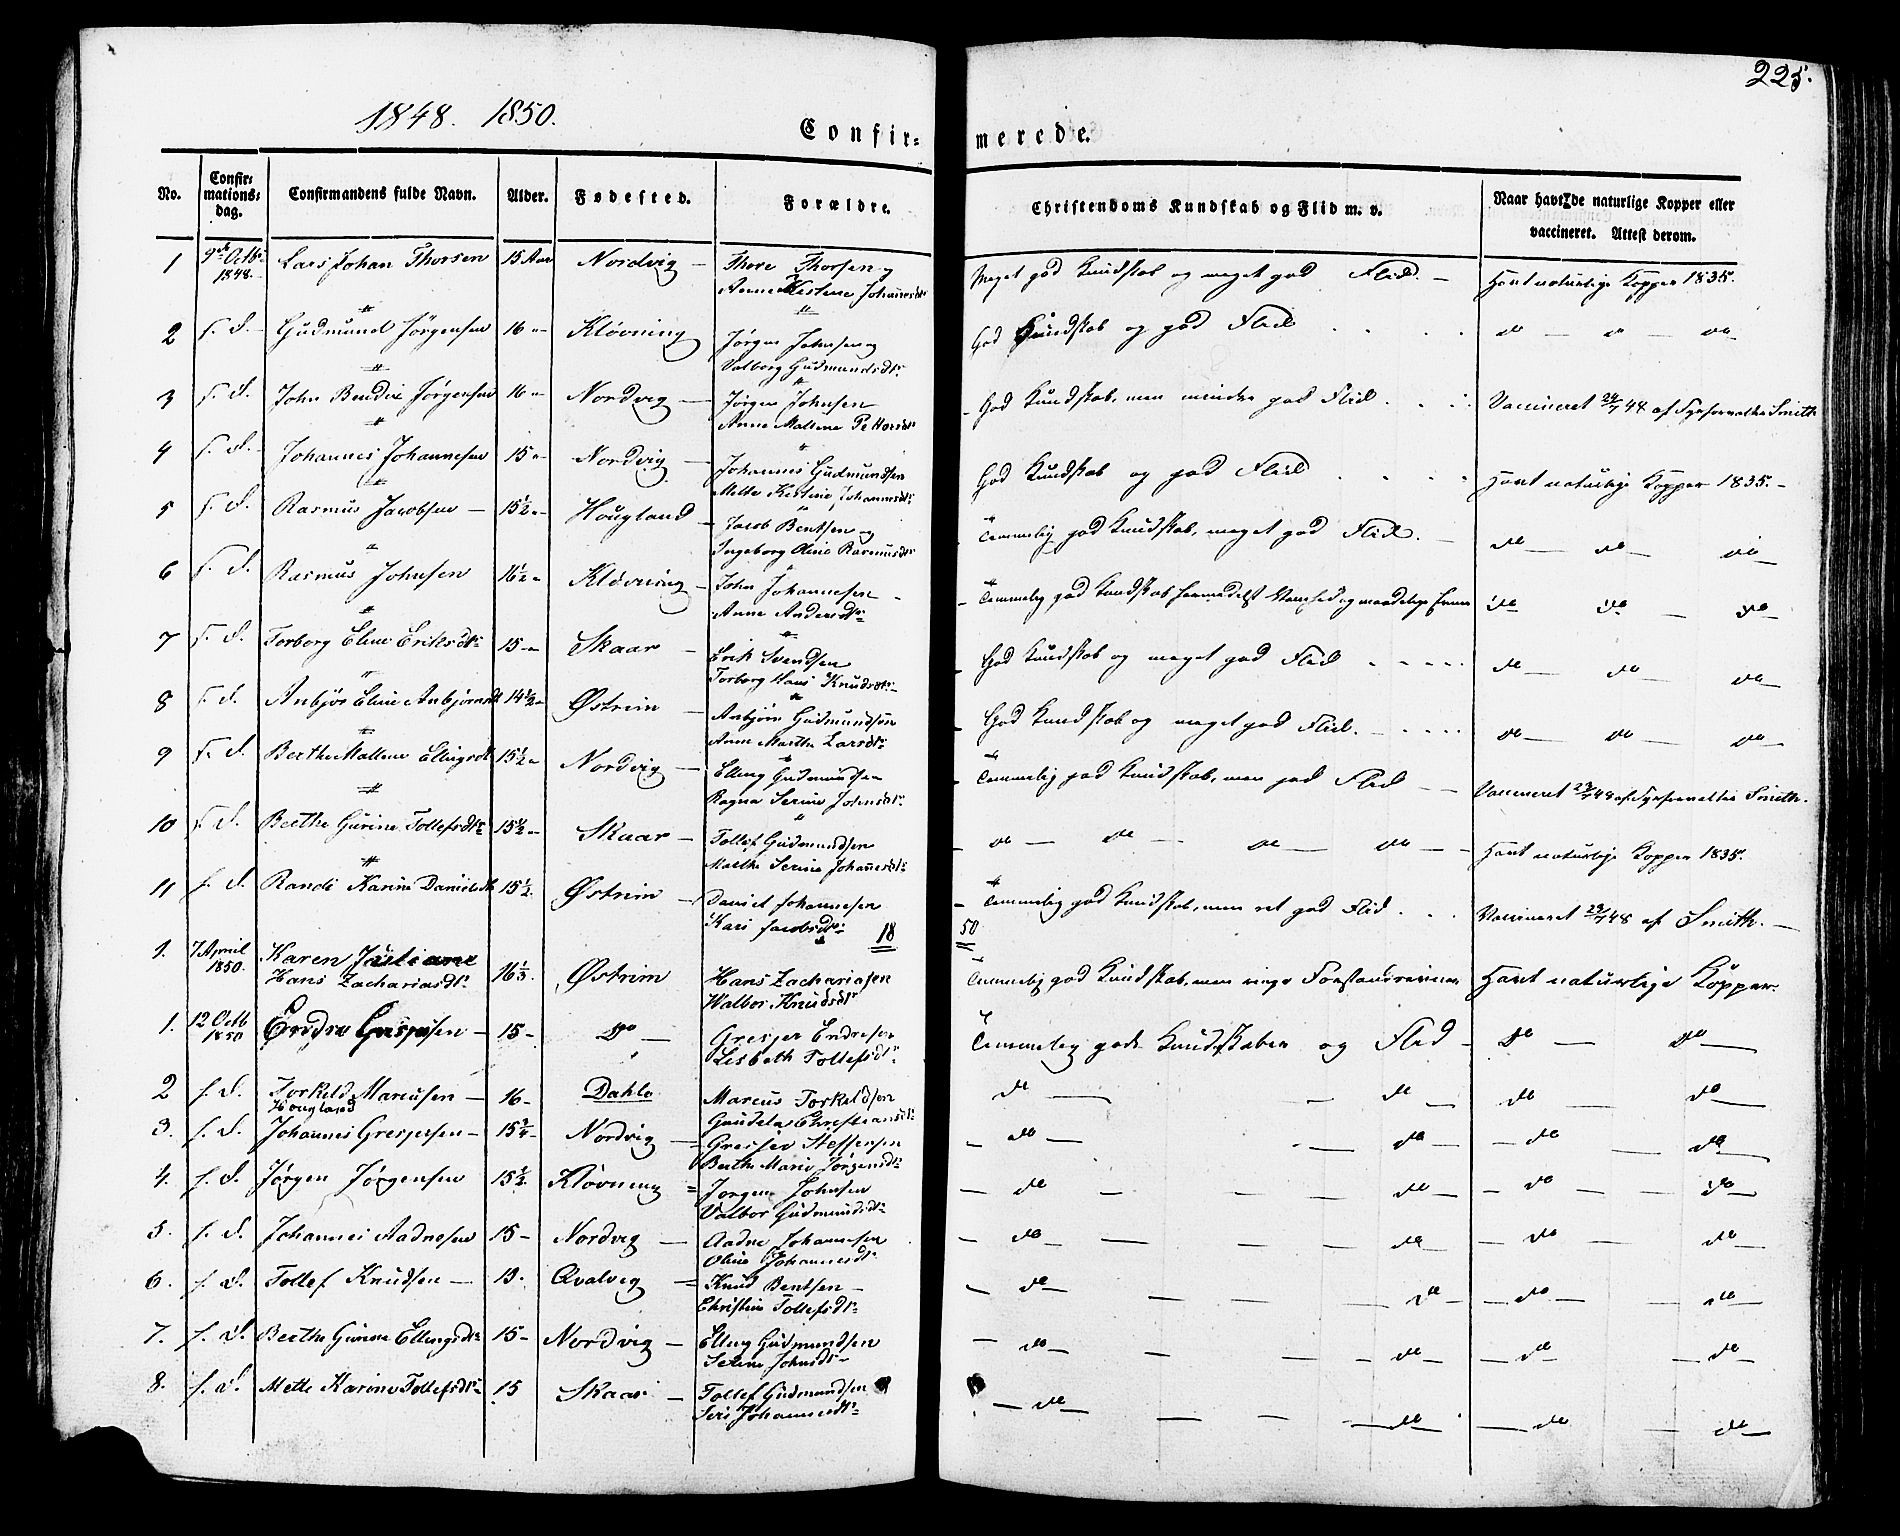 225.
1848. 1850.
Confir= merede.
No. Confir= mations= dag. Confirmandens fulde Navn. Alder. Fødested. Forældre. Christendoms Kundskab og Flid m. v. Naar havt de naturlige Kopper eller vaccineret. Attest derom.
1 9de Octbr 1848. Lars Johan Thorsen 15 Aar Nordvig – Thore Thorsen og Meget god Kundskab og meget god Flid. – Havt naturlige Kopper 1835.
Anne Kistine Johannesdtr
2 s. d. Gudmund Jørgensen 16 " Kløvning Jørgen Johnsen og God Kundskab og god Flid do – do – do
Valborg Gudmundsdtr
3 s. d. John Bendix Jørgensen 16 " Nordvig – Jørgen Johnsen God Kundskab, men mindre god Flid. Vaccineret 24/7 48 af Smith
Anne Mallene Pettersdtr
4 s. d. Johannes Johannesen 15 " Nordvig – Johannes Gudmundsen God Kundskab og god Flid Havt naturlige Kopper 1835. –
Mette Kistine Johannesdtr
5 s. d. Rasmus Jacobsen – 15½ " Hougland – Jacob Bentsen og Temmelig god Kundskab, meget god Flid. – do – do – do
Ingeborg Oline Rasmusdtr
6 s. d. Rasmus Johnsen 16½ " Kløvning – John Johannesen – Temmelig god Kundskab formedelst og maadelige Evner do do – do –
Anne Andersdtr
7 s. d. Torborg Eline Eriksdtr 15 " Skaar – Erik Svendsen God Kundskab og meget god Flid do – do – do –
Torborg Hans Knudsdtr
8 s. d. Anbjør Eline Anbjørnsdtr 14½ " Østrim – Anbjørn Gudmundsen God Kundskab og meget god Flid. do – do – do –
Anne Marthe Larsdtr
9 s. d. Berthe Mallene Ellingsdtr 15½ " Nordvig – Elling Gudmundsen Temmelig god Kundskab, men god Flid – – Vaccineret 24/7 48 af Smith.
Ragna Serine Johnsdtr
10 s. d. Berthe Gurine Tollefsdtr 15½ " Skaar – Tollef Gudmundsen – do – do – do – do – – Havt naturlige Kopper 1835.
Marthe Serine Johannesdtr
11 s. d. Randi Karine Danielsdtr 15½. Østrim – Daniel Johannesen – Temmelig god Kundskab, men ret god Flid. Vaccineret 24/7 48 af Smith. –
Kari Jacobsdtr
18 50
1. 7 April 1850. Karen Justiane 16⅓. Østrim Hans Zachariasen Temmelig god Kundskab, men ringe Forstandsevner Havt naturlige Kopper.
Hans Zachariasdtr Walbor Knudsdtr
1. 12 Octb 1850 Endre Gresjersen – 15 – do – Gresjer Endresen Temmelig gode Kundskaber og Flid – do – do –
Lisbeth Tollefsdtr
2 s. d. Torkild Marcusen – 16 – Dahle Marcus Torkeldsen do – – do – do – do –
Hougland
Gundela Christiansdtr
3. s. d. Johannes Gresjersen – 15¾ – Nordvig – Gresjer Steffensen – do – – do – do – do –
Berthe Marie Jørgensdtr
4. s. d. Jørgen Jørgensen 15½. Kløvning = Jørgen Johnsen – do – – – do – – do – – do –
Valbor Gudmundsdtr
5. s. d. Johannes Aadnesen 15 – Nordvig – Aadne Johannesen – do – – – – do – – do – – do –
Oline Johannesdtr
6. s. d. Tollef Knudsen – 15. Qvalvig = Knud Bentsen – – do – – – – do – – do – – do –
Christine Tollefsdtr
7. s. d. Berthe Gurine Ellingsdtr 15 – Nordvig – Elling Gudmundsen – do – – – – do – – do – – do –
Serine Johnsdtr
8. s. d. Mette Karine Tollefsdtr 15 Skaar – Tollef Gudmundsen – do – – – – do – – do – – do –
Seri Johannesdtr